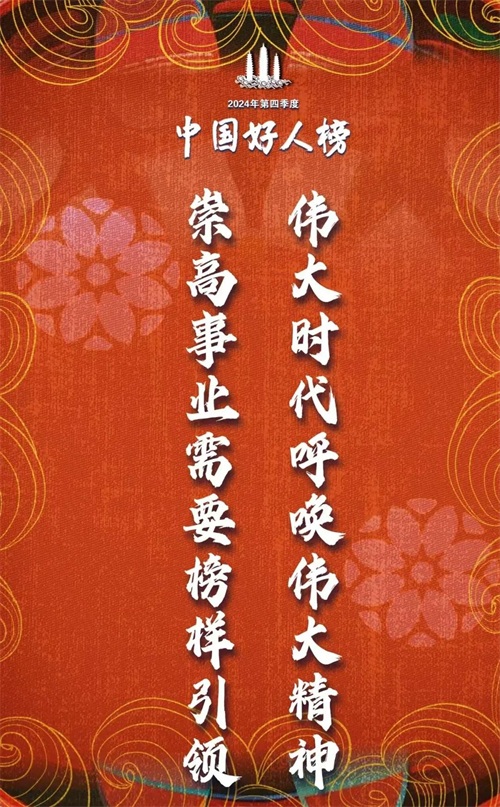 2024年第四季度
中国好人榜
伟大时代呼唤伟大精神
崇高事业需要榜样引领